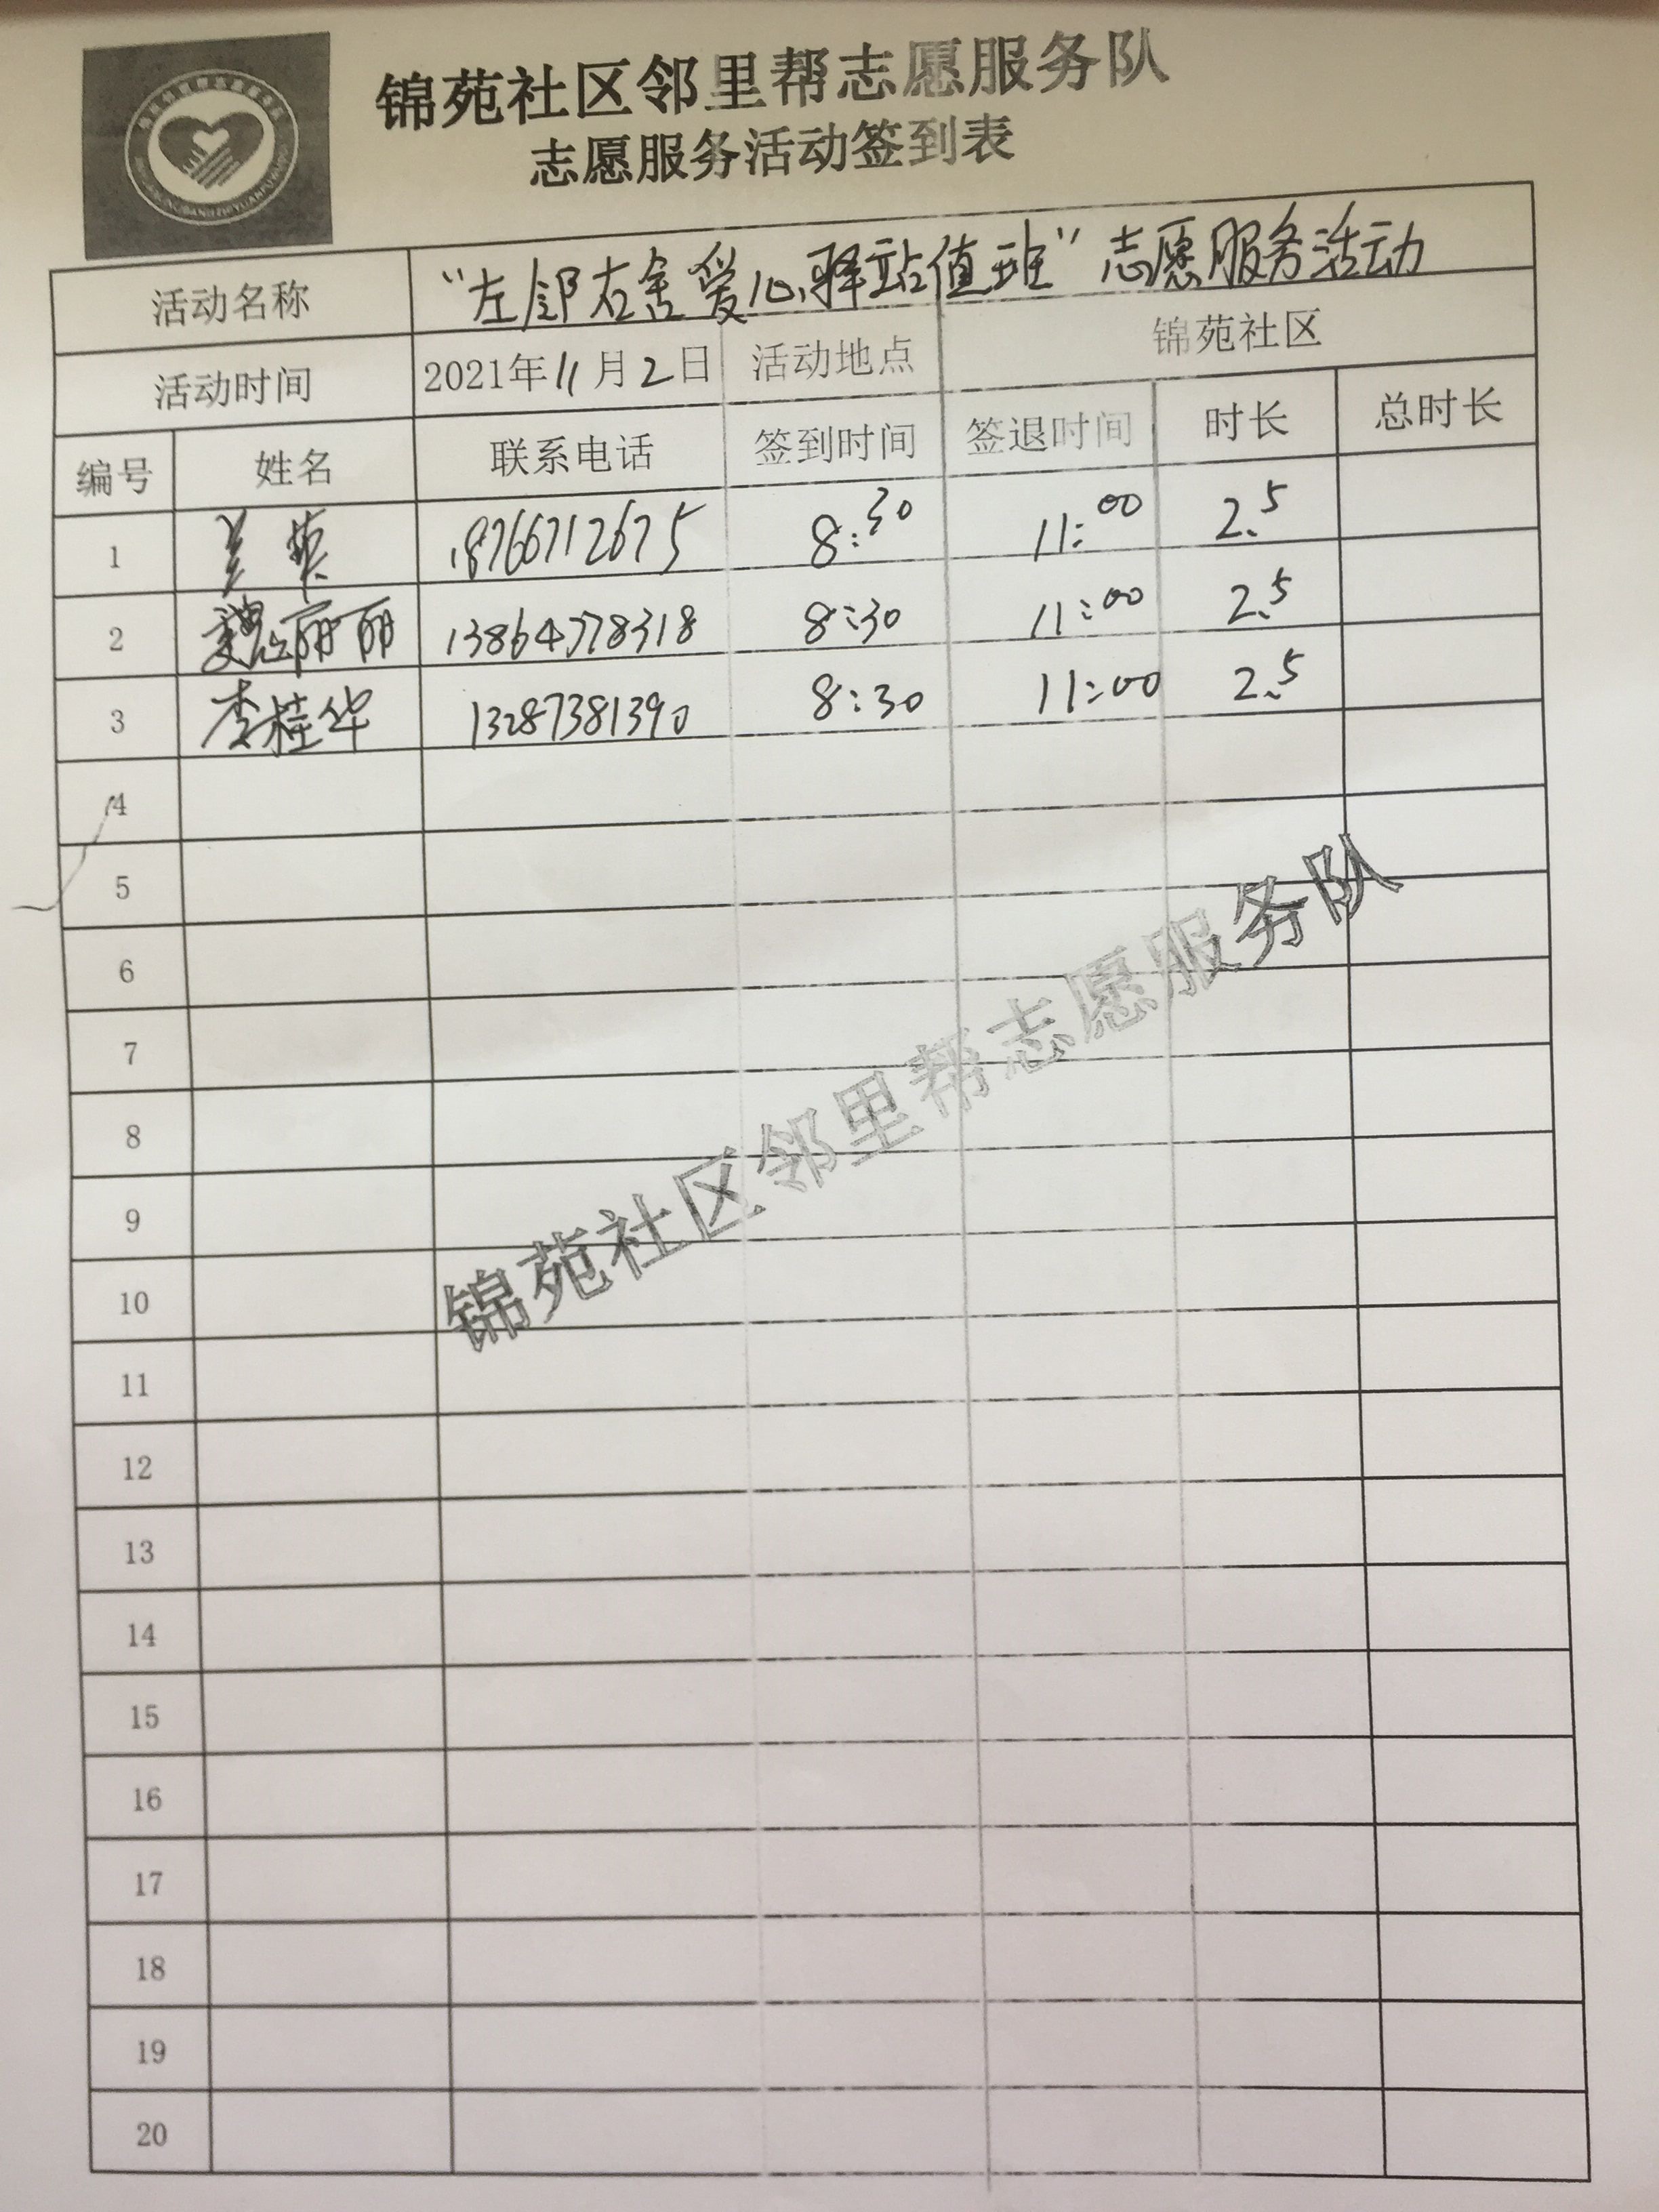 锦苑社区邻里帮志愿服务队
志愿服务活动签到表
活动名称 "左邻右舍爱心驿站值班"志愿服务活动
活动时间 2021年11月2日 活动地点 锦苑社区
编号 姓名 联系电话 签到时间 签退时间 时长 总时长
1 18766712675 8:30 11:00 2.5
2 魏丽丽 13864778318 8:30 11:00 2.5
3 李桂华 13287381390 8:30 11:00 2.5
4
5
6
7
8
9
10
11
12
13
14
15
16
17
18
19
20
锦苑社区邻里帮志愿服务队